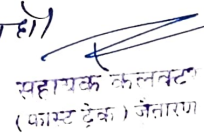 हो।
सहायक कलक्टर
(फास्ट ट्रेक) जैतारण